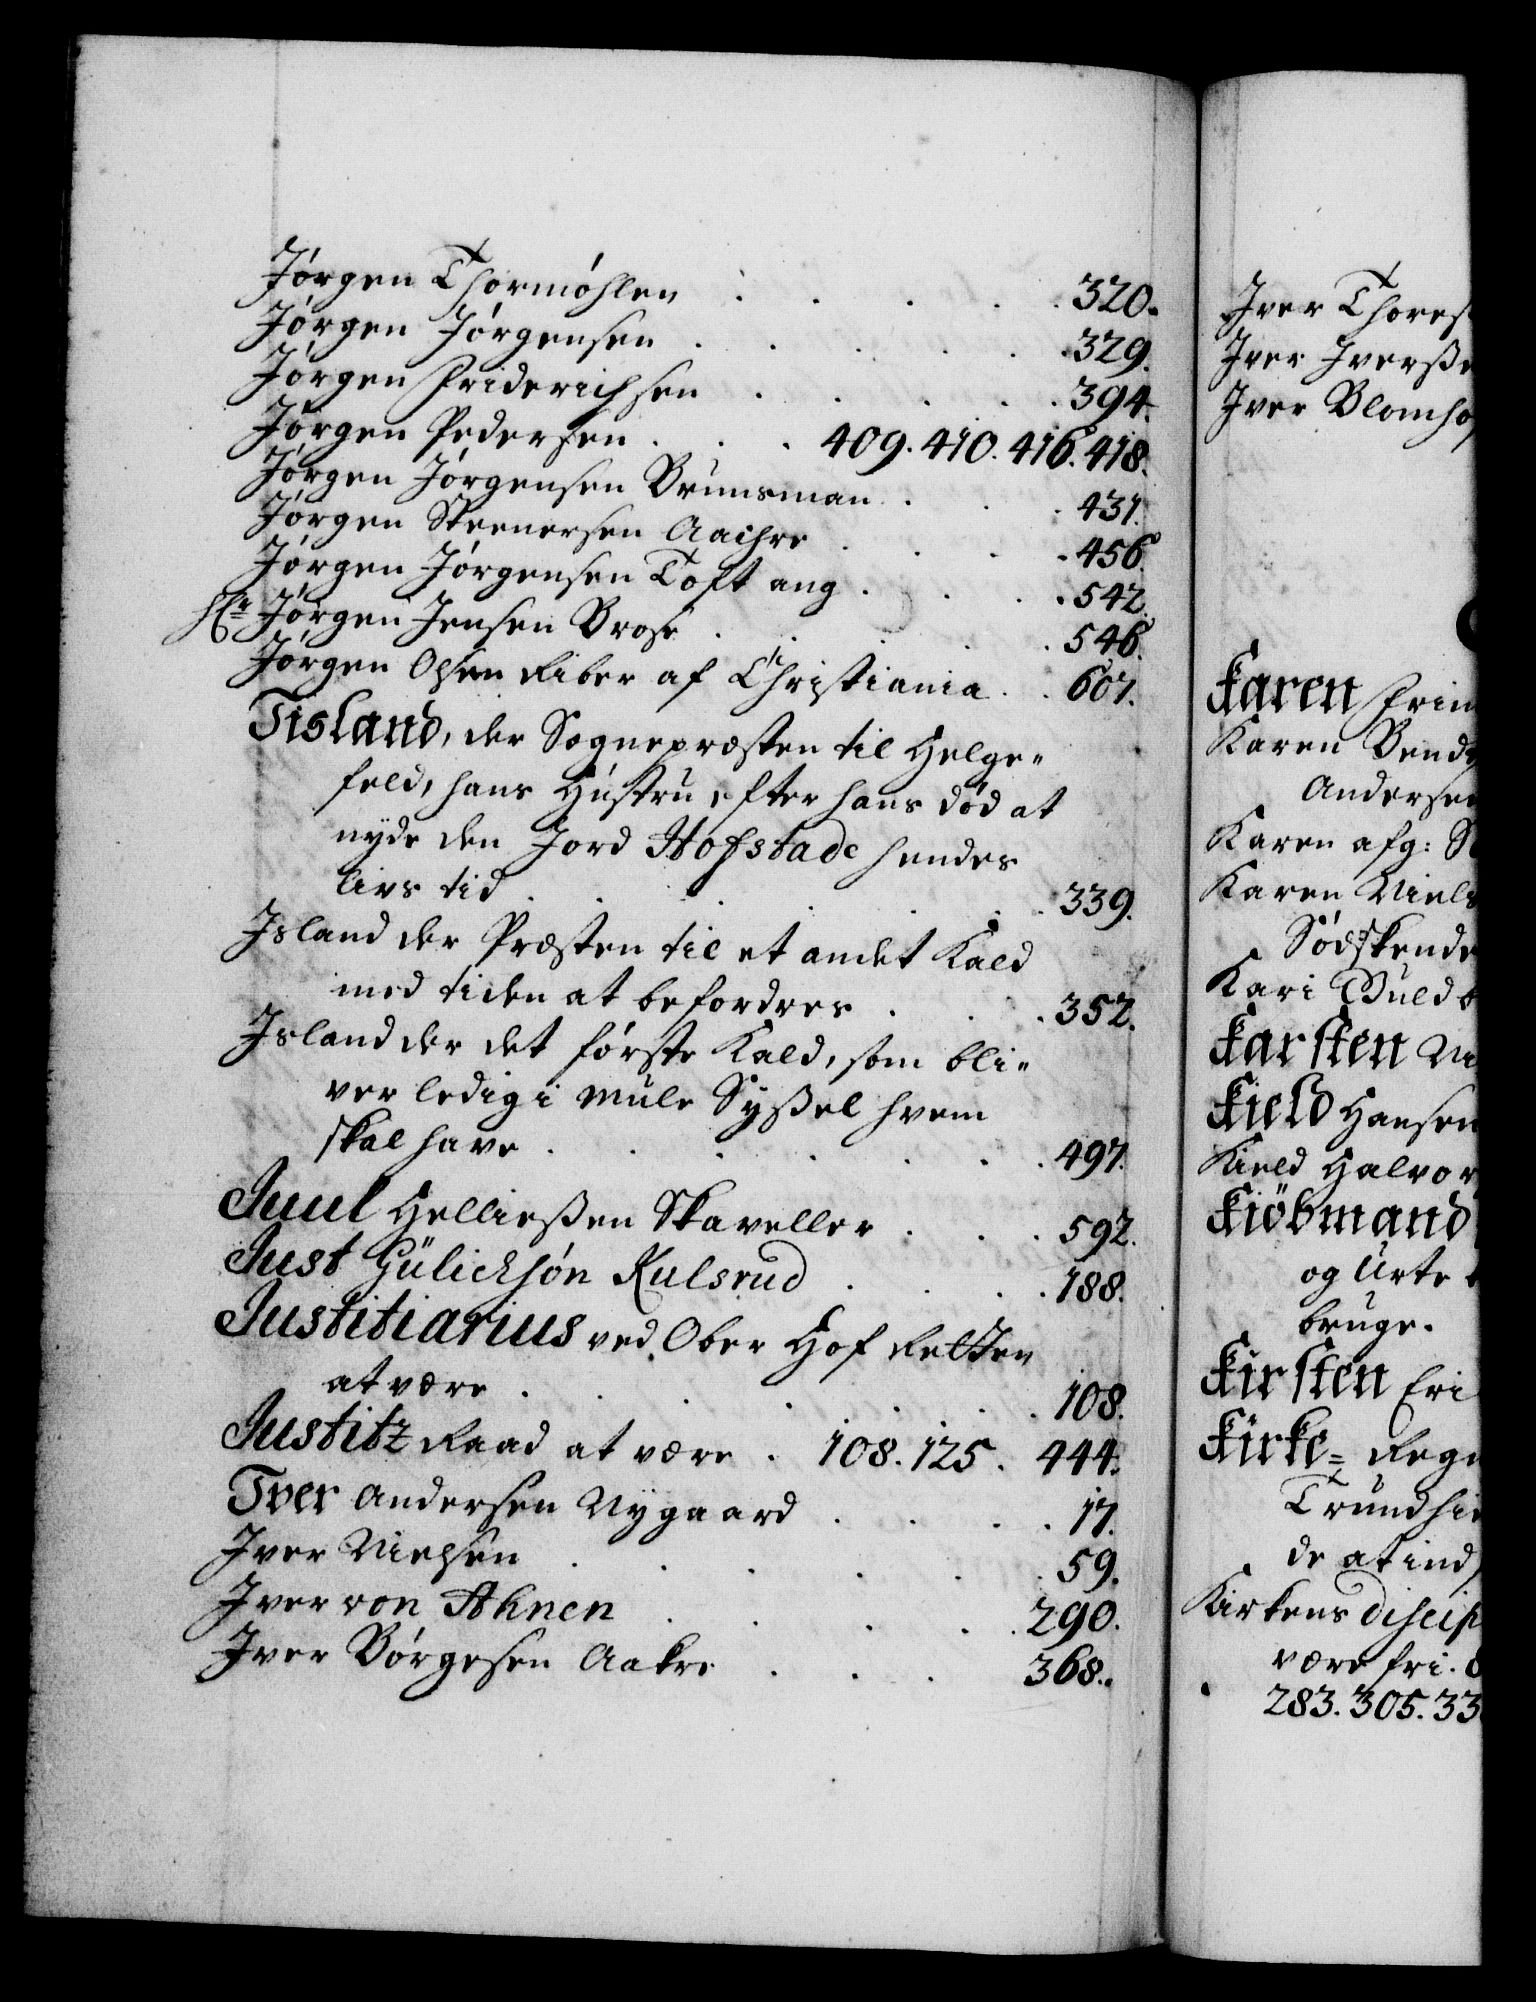 Jørgen Thormøhlen . . . . . 320.
Jørgen Jørgensen . . . . . 329.
Jørgen Friderichsen . . . . . 394.
Jørgen Pedersen . . . 409. 410. 416. 418.
Jørgen Jørgensen Brunsman . . . 431.
Jørgen Steenersen Aachre . . . 456.
Jørgen Jørgensen Toft ang . . . 542.
Jørgen Jensen Brose . . . . 546.
Jørgen Olsen Riber af Christiania . . 607.
Iisland, der Sognepræsten til Helge-
feld, hans Hústru efter hans død at
nyde den Jord Hofstade hendes
livs tid . . . . . . 339.
Island der Præsten til et andet Kald
med tiden at befordres . . . 352.
Island der det første Kald, som bli-
ver ledig i Mule Syßel hvem
skal have . . . . . . 497.
Juul Helließen Skaveller . . . 592.
Just Gülichsøn Rulsrud . . . 188.
Justitiarius ved Ober Hof Retten
at være . . . . . . 108.
Justitz Raad at være . 108. 125. 444.
Iver Andersen Nygaard . . . . 17.
Iver Nielsen . . . . . . 59.
Iver von Ahnen . . . . . 290.
Iver Børgesen Aakre . . . 368.
Iver Thores
Iver Iverße
Iver Blomho
Karen Prin
Karen Bend
Andersen
Karen afg: S
Karen Niels
Sødskende
Kari Guld
Karsten Ni
Kield Hansen
Kield Halvor
Kiöbmand
og Urte
bruge.
Kirsten Eri
Kirke- Regn
Trundhie
de at ind
Kirkens discip
være fri.
283. 305. 33